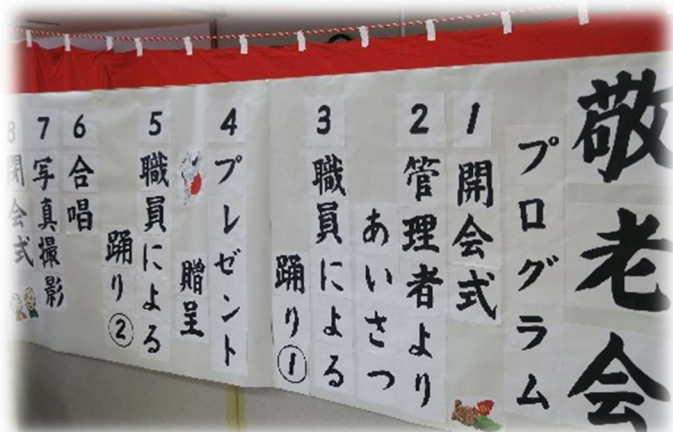 敬老会
プログラム
1 開会式
2 管理者より
あいさつ
3 職員による
踊り①
4 プレゼント
贈呈
5 職員による
踊り②
6 合唱
7 写真撮影
8 閉会式